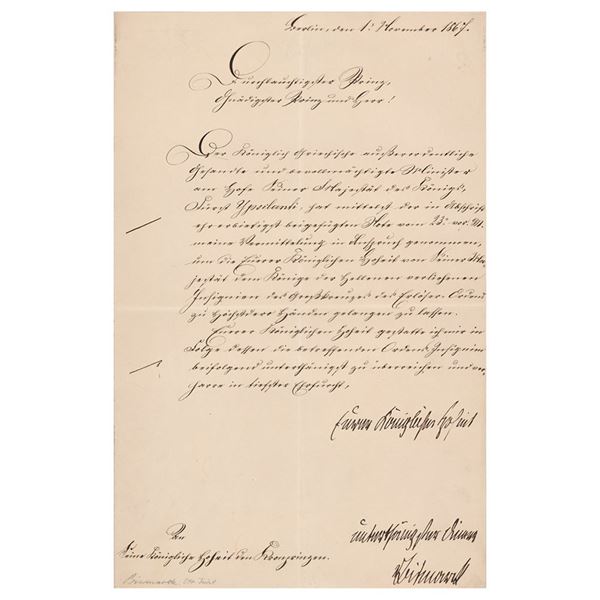 Berlin, den 1. November 1867.
Durchlauchtigster Prinz,
Gnädigster Prinz und Herr!
Der Königlich Griechische außerordentliche
Gesandte und bevollmächtigte Minister
am Hofe Seiner Majestät des Königs,
Fürst Ypsilanti, hat mittelst der in Abschrift
ehrerbietigst beigefügten Note vom 23. vor. Mt.
meine Vermittelung in Anspruch genommen,
um die Eurer Königlichen Hoheit von Seiner Ma,
jestät dem Könige der Hellenen verliehenen
Insignien des Großkreuzes des Erlöser-Ordens
zu Höchstderen Händen gelangen zu lassen.
Eurer Königlichen Hoheit gestatte ich mir in
Folge dessen die betreffenden Ordens-Insignien
beifolgend unterthänigst zu überreichen und ver,
harre in tiefster Ehrfurcht,
Eurer Königlichen Hoheit
unterthänigster Diener
vBismarck
An
Seine Königliche Hoheit den Kronprinzen.
Bismarck, Otto Fürst